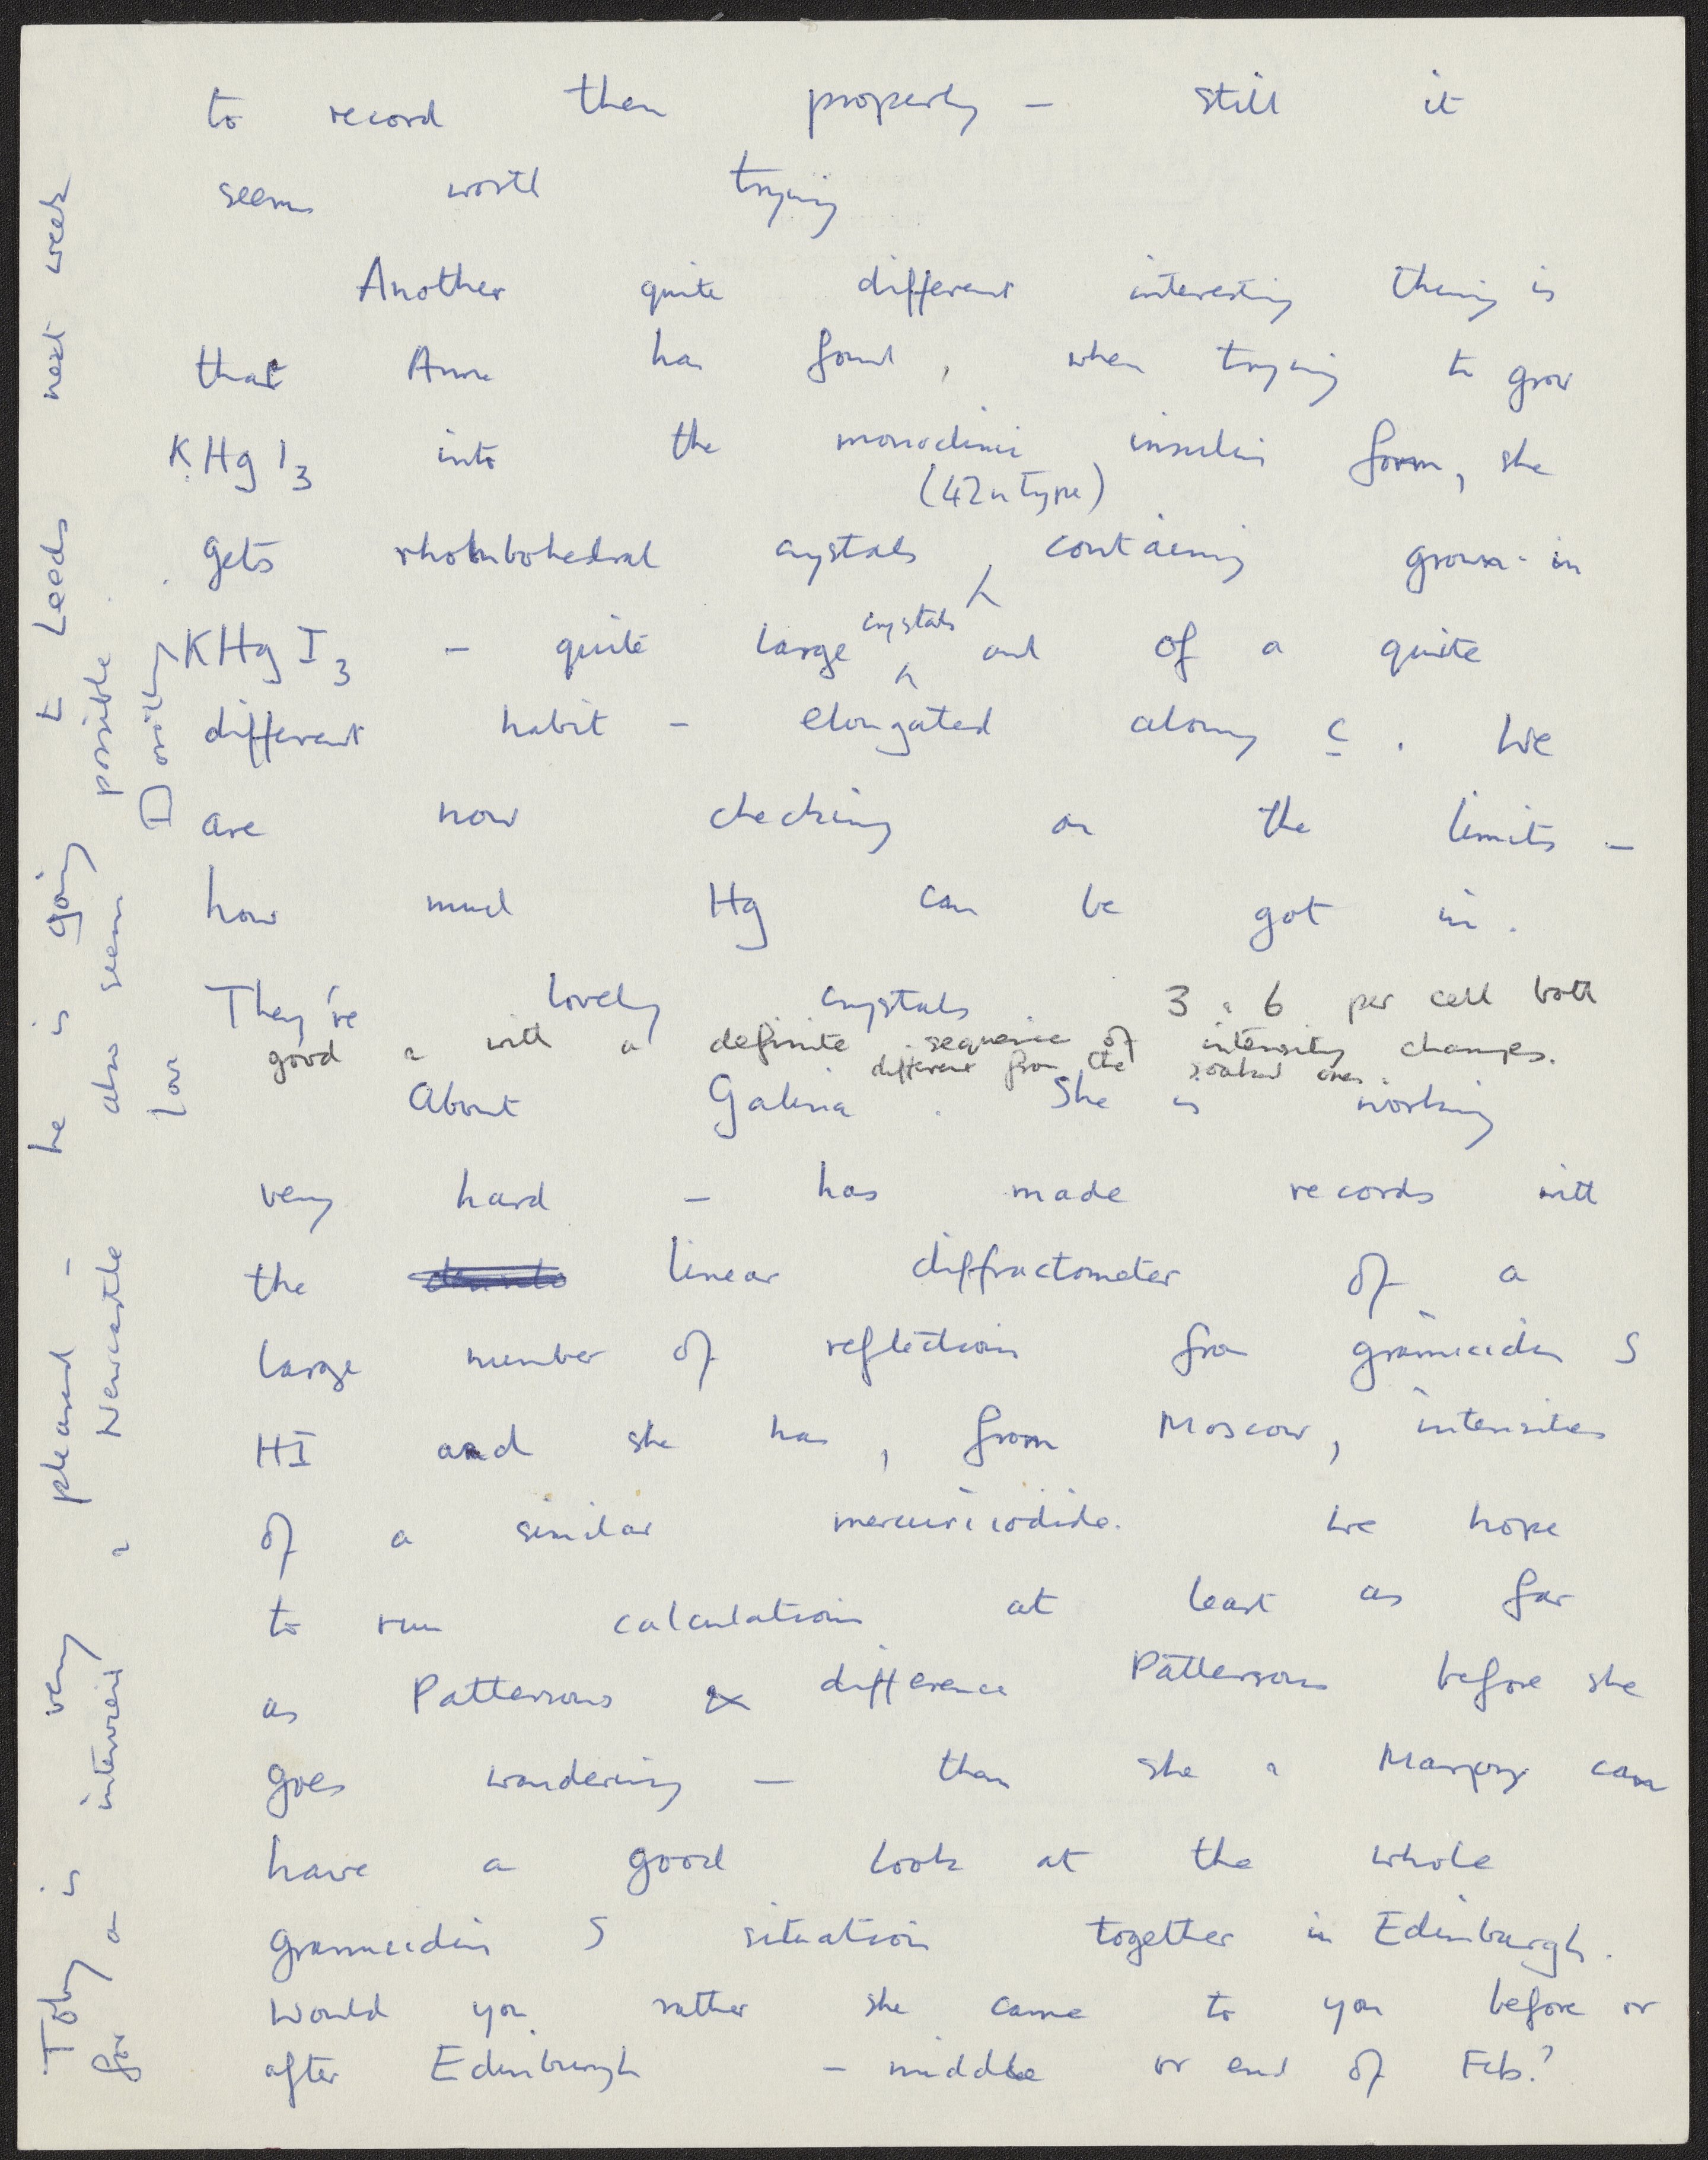 to record them properly – still it
seems worth trying
Another quite different interesting thing is
that Anne has found, when trying to grow
KHgI3 into the monoclinic insulin form, she
(4Zn type)
gets rhombohedral crystals containing grown-in
KHgI3 – quite large crystals and of a quite
different habit – elongated along c. We
are now checking on the limits –
how much Hg can be got in.
They're lovely crystals 3 & 6 per cell both
good & with a definite sequence of intensity changes.
different from the soaked ones.
About Galina. She is working
very hard – has made records with
the linear diffractometer of a
large number of reflections from gramicidin S
HI and she has, from Moscow, intensities
of a similar mercuri iodide. We hope
to run calculations at least as far
as Pattersons & difference Pattersons before she
goes wandering – then she & Marjorie can
have a good look at the whole
gramicidin S situation together in Edinburgh.
Would you rather she came to you before or
after Edinburgh – middle or end of Feb?
Toby is very pleased – he is going to Leeds next week
for an interview & Newcastle also seems possible
Love Dorothy